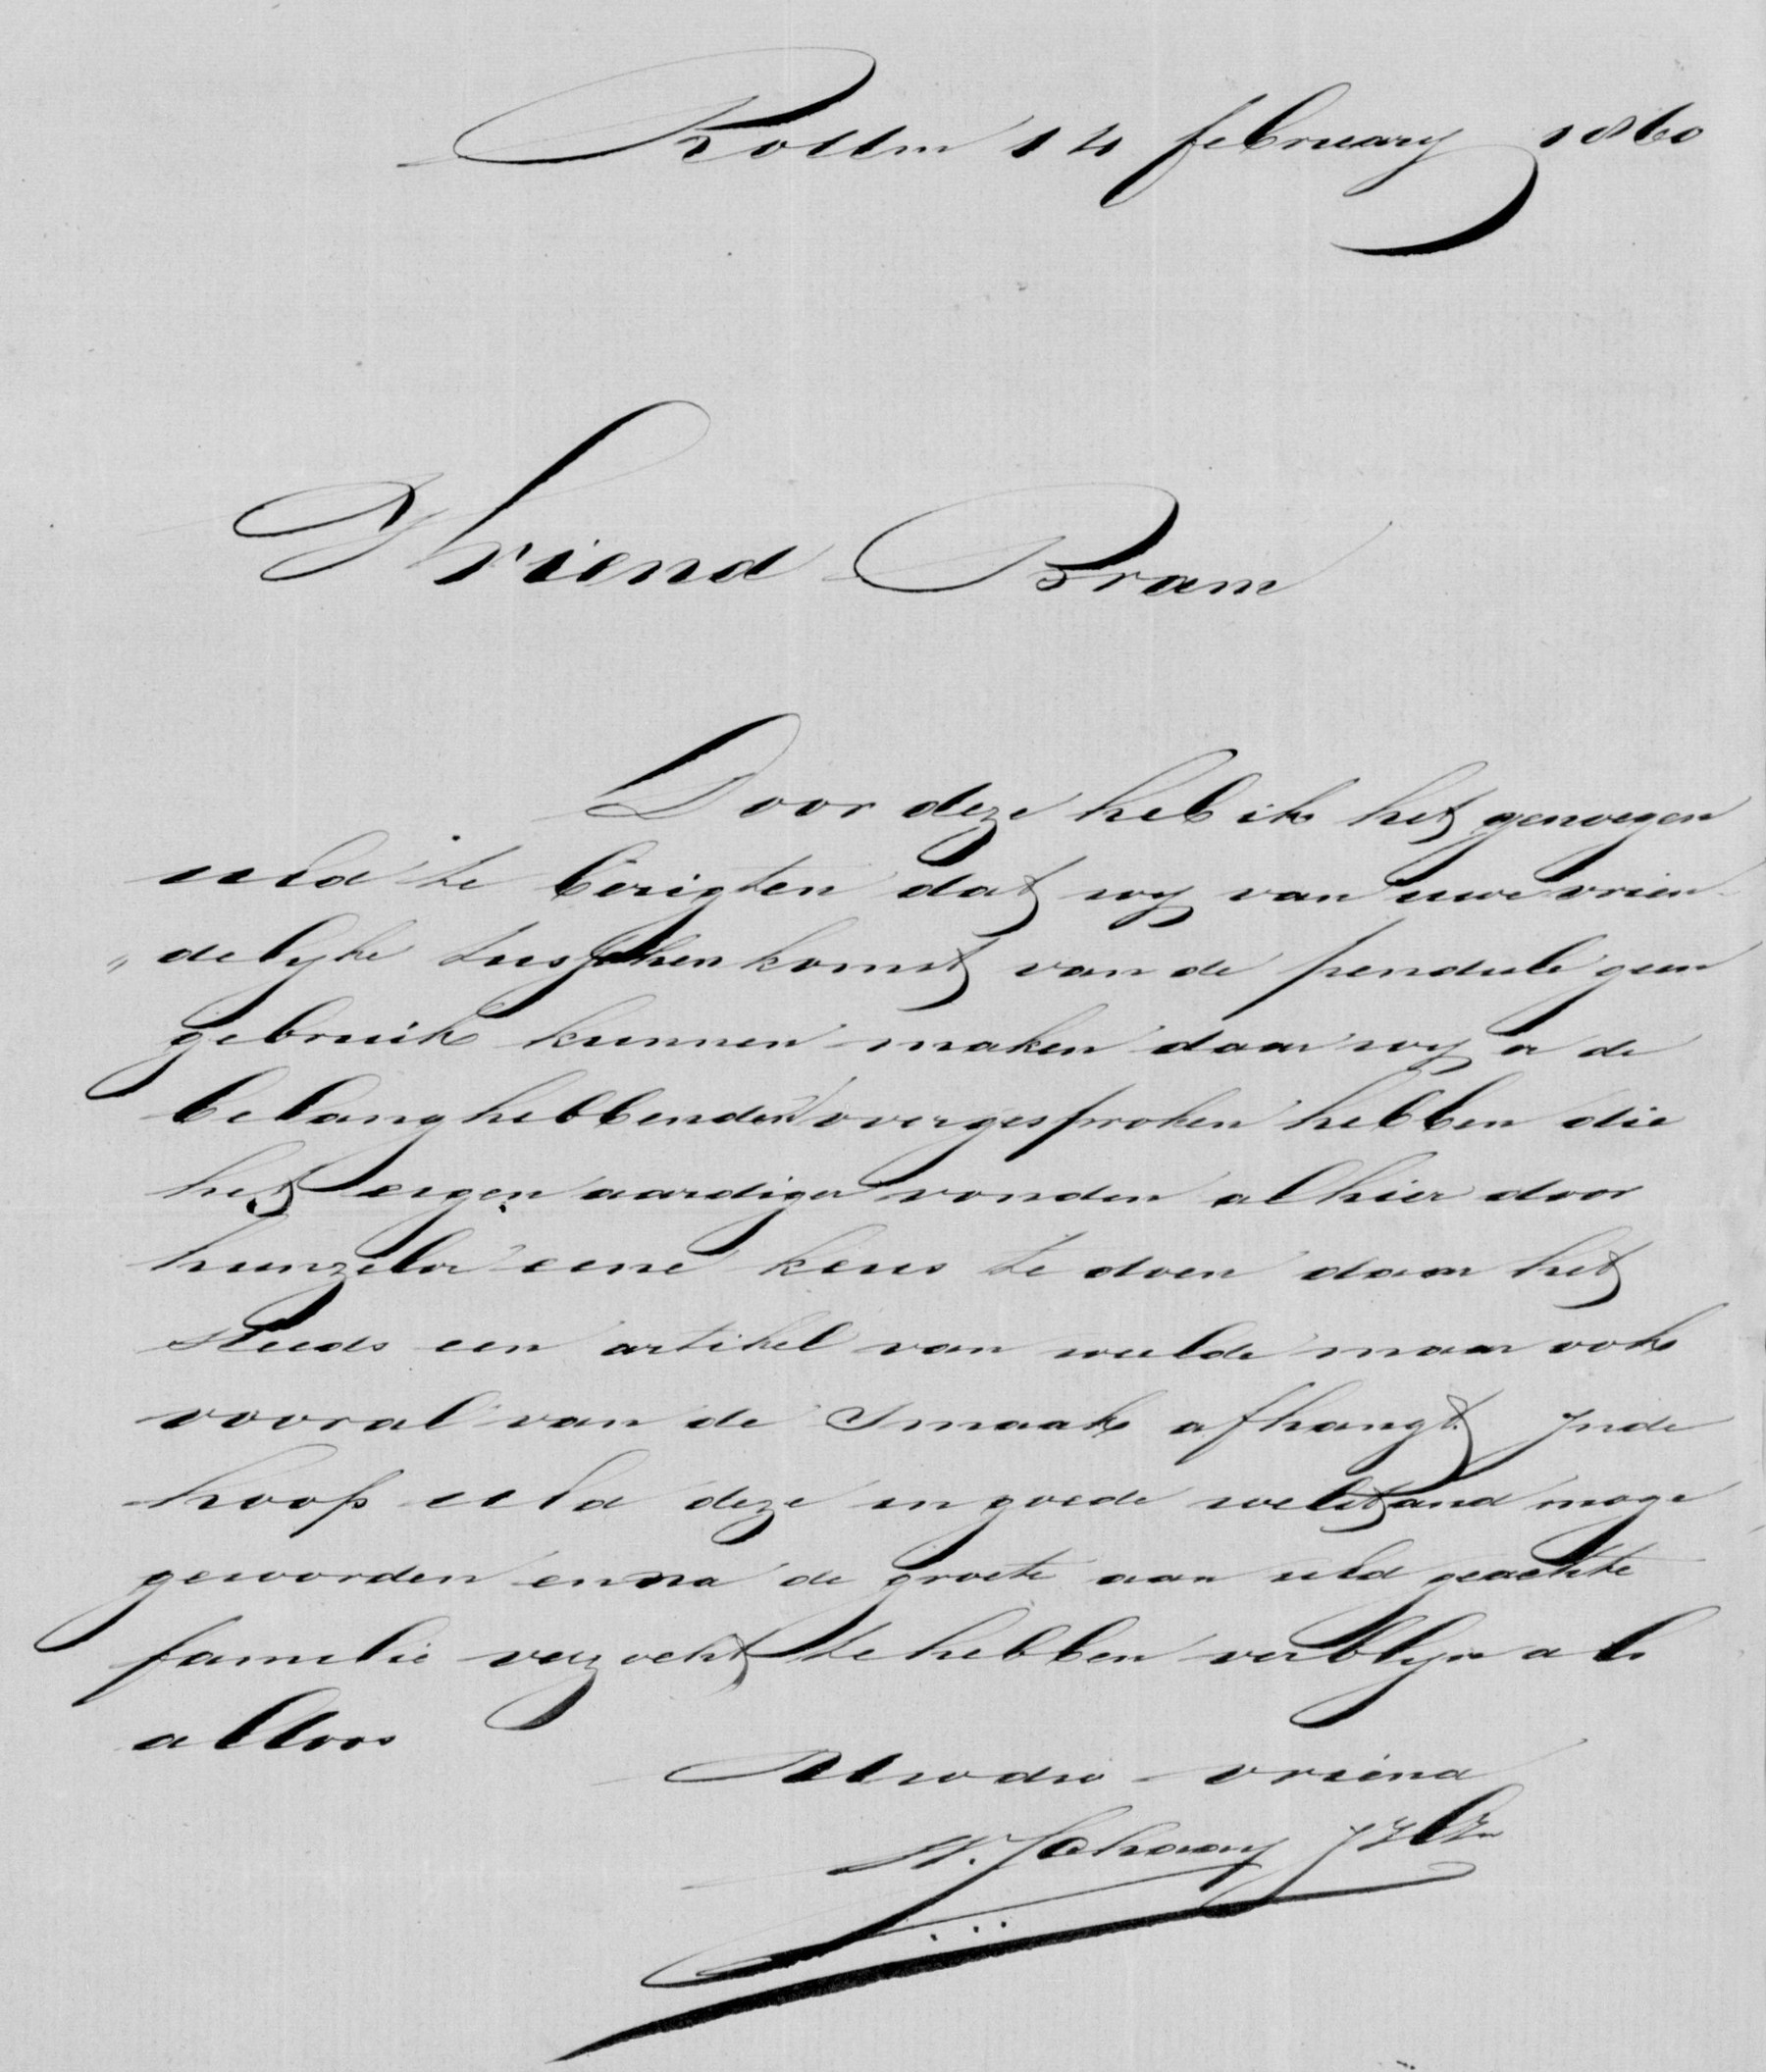 Rottm 14 february 1860
Vriend Bram
Door deze heb ik het genoegen
uEd te berigten dat wy van uwe vrien
„delyke tusschenkomst van de pendule geen
gebruik kunnen maken daar wy er de
belanghebbenden overgesproken hebben die
het eigenaardiger vonden alhier door
hunzelve eene keus te doen daar het
steeds een artikel van weelde maar ook
vooral van de smaak afhangt Inde
hoop uEd deze in goede welstand moge
geworden en na de groete aan uEd geachte
familie verzocht te hebben verblyve als
altoos
UEd dw vriend